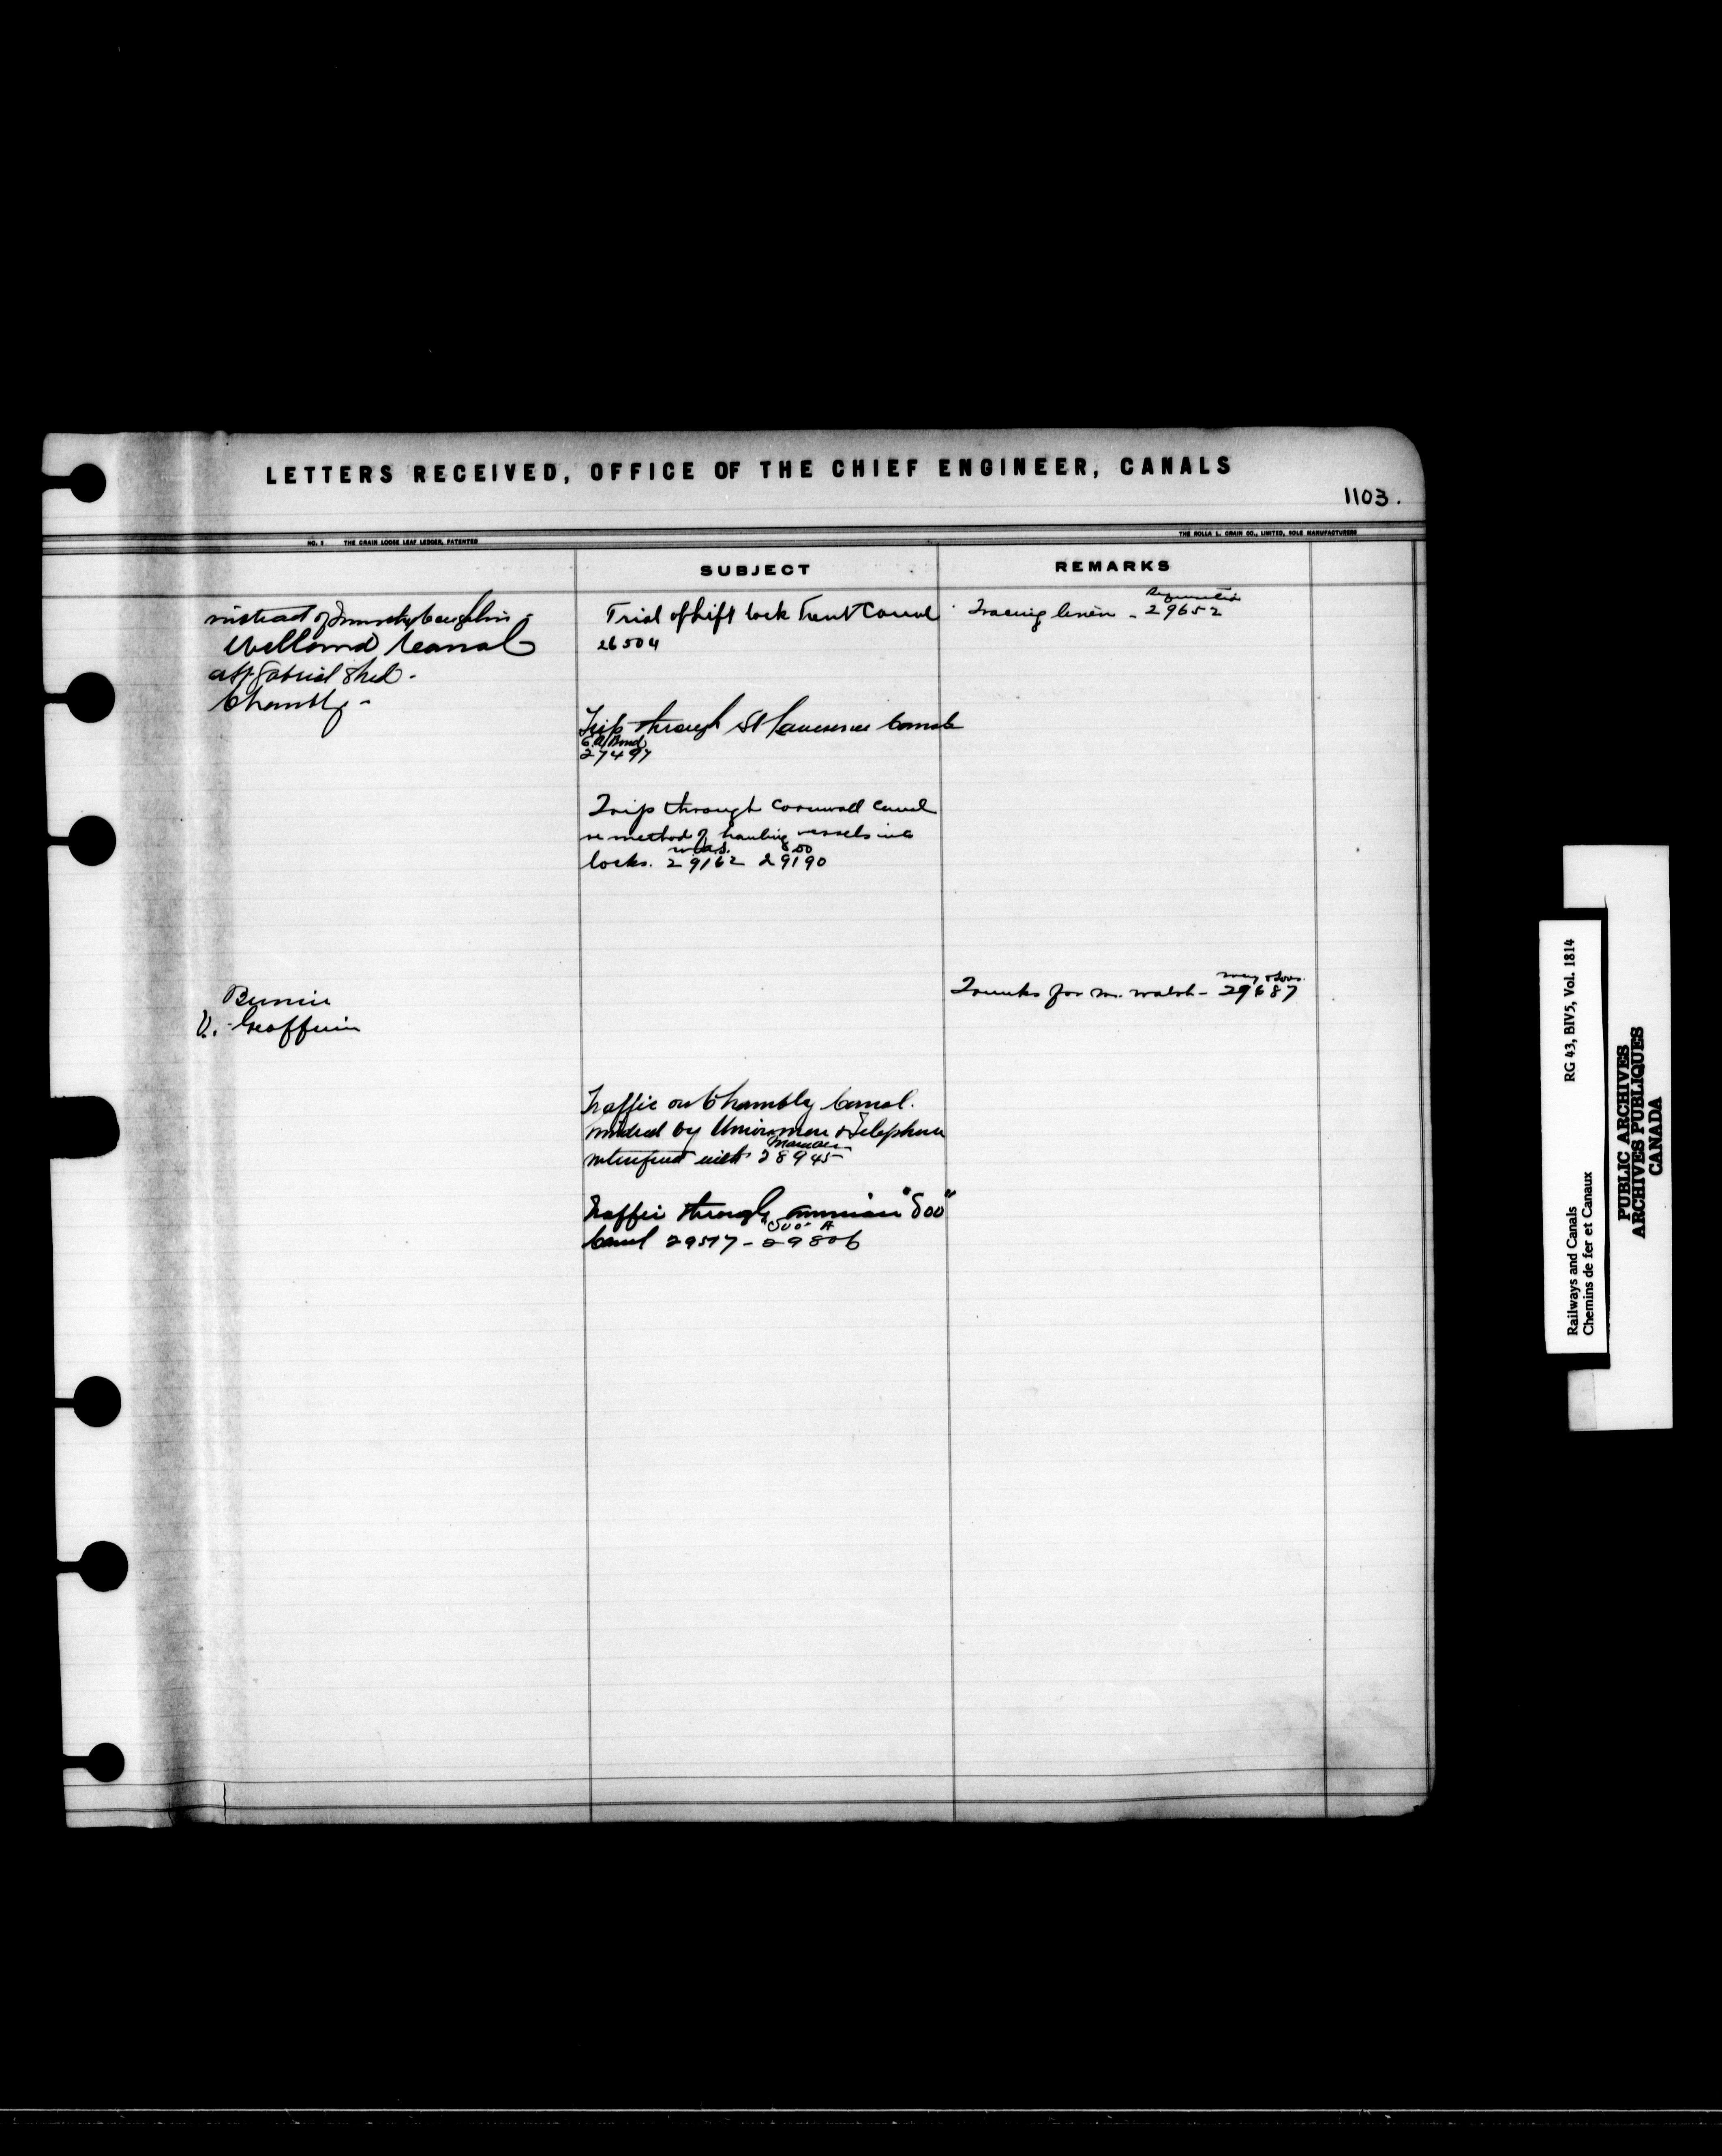 LETTERS RECEIVED, OFFICE OF THE CHIEF ENGINEER, CANALS
1103.
NO. 1 THE CRAIN LOOSE LEAF LEDGER, PATENTED
THE ROLLA L. CRAIN CO., LIMITED, SOLE MANUFACTURERS
SUBJECT
REMARKS
instead of
Welland Canal
Gabriel Shed -
Chambly -
Bernier
V. Geoffrion
Trial of Lift lock Trent Canal
26504
Trip through St Lawrence Canals
27497
Trip through Cornwall Canal
re method of hauling vessels into
Soo
locks. 29162 29190
Traffic on Chambly Canal.
by Union men & Telephone
interfered with 28945
Traffic through American "Soo"
"Soo" A
Canal 29517 - 29806
Requisition
Tracing linen - 29652
May & Sons
Trunks for Mr. Walsh - 29687
Railways and Canals RG 43, BIV5, Vol. 1814
Chemins de fer et Canaux
PUBLIC ARCHIVES
ARCHIVES PUBLIQUES
CANADA